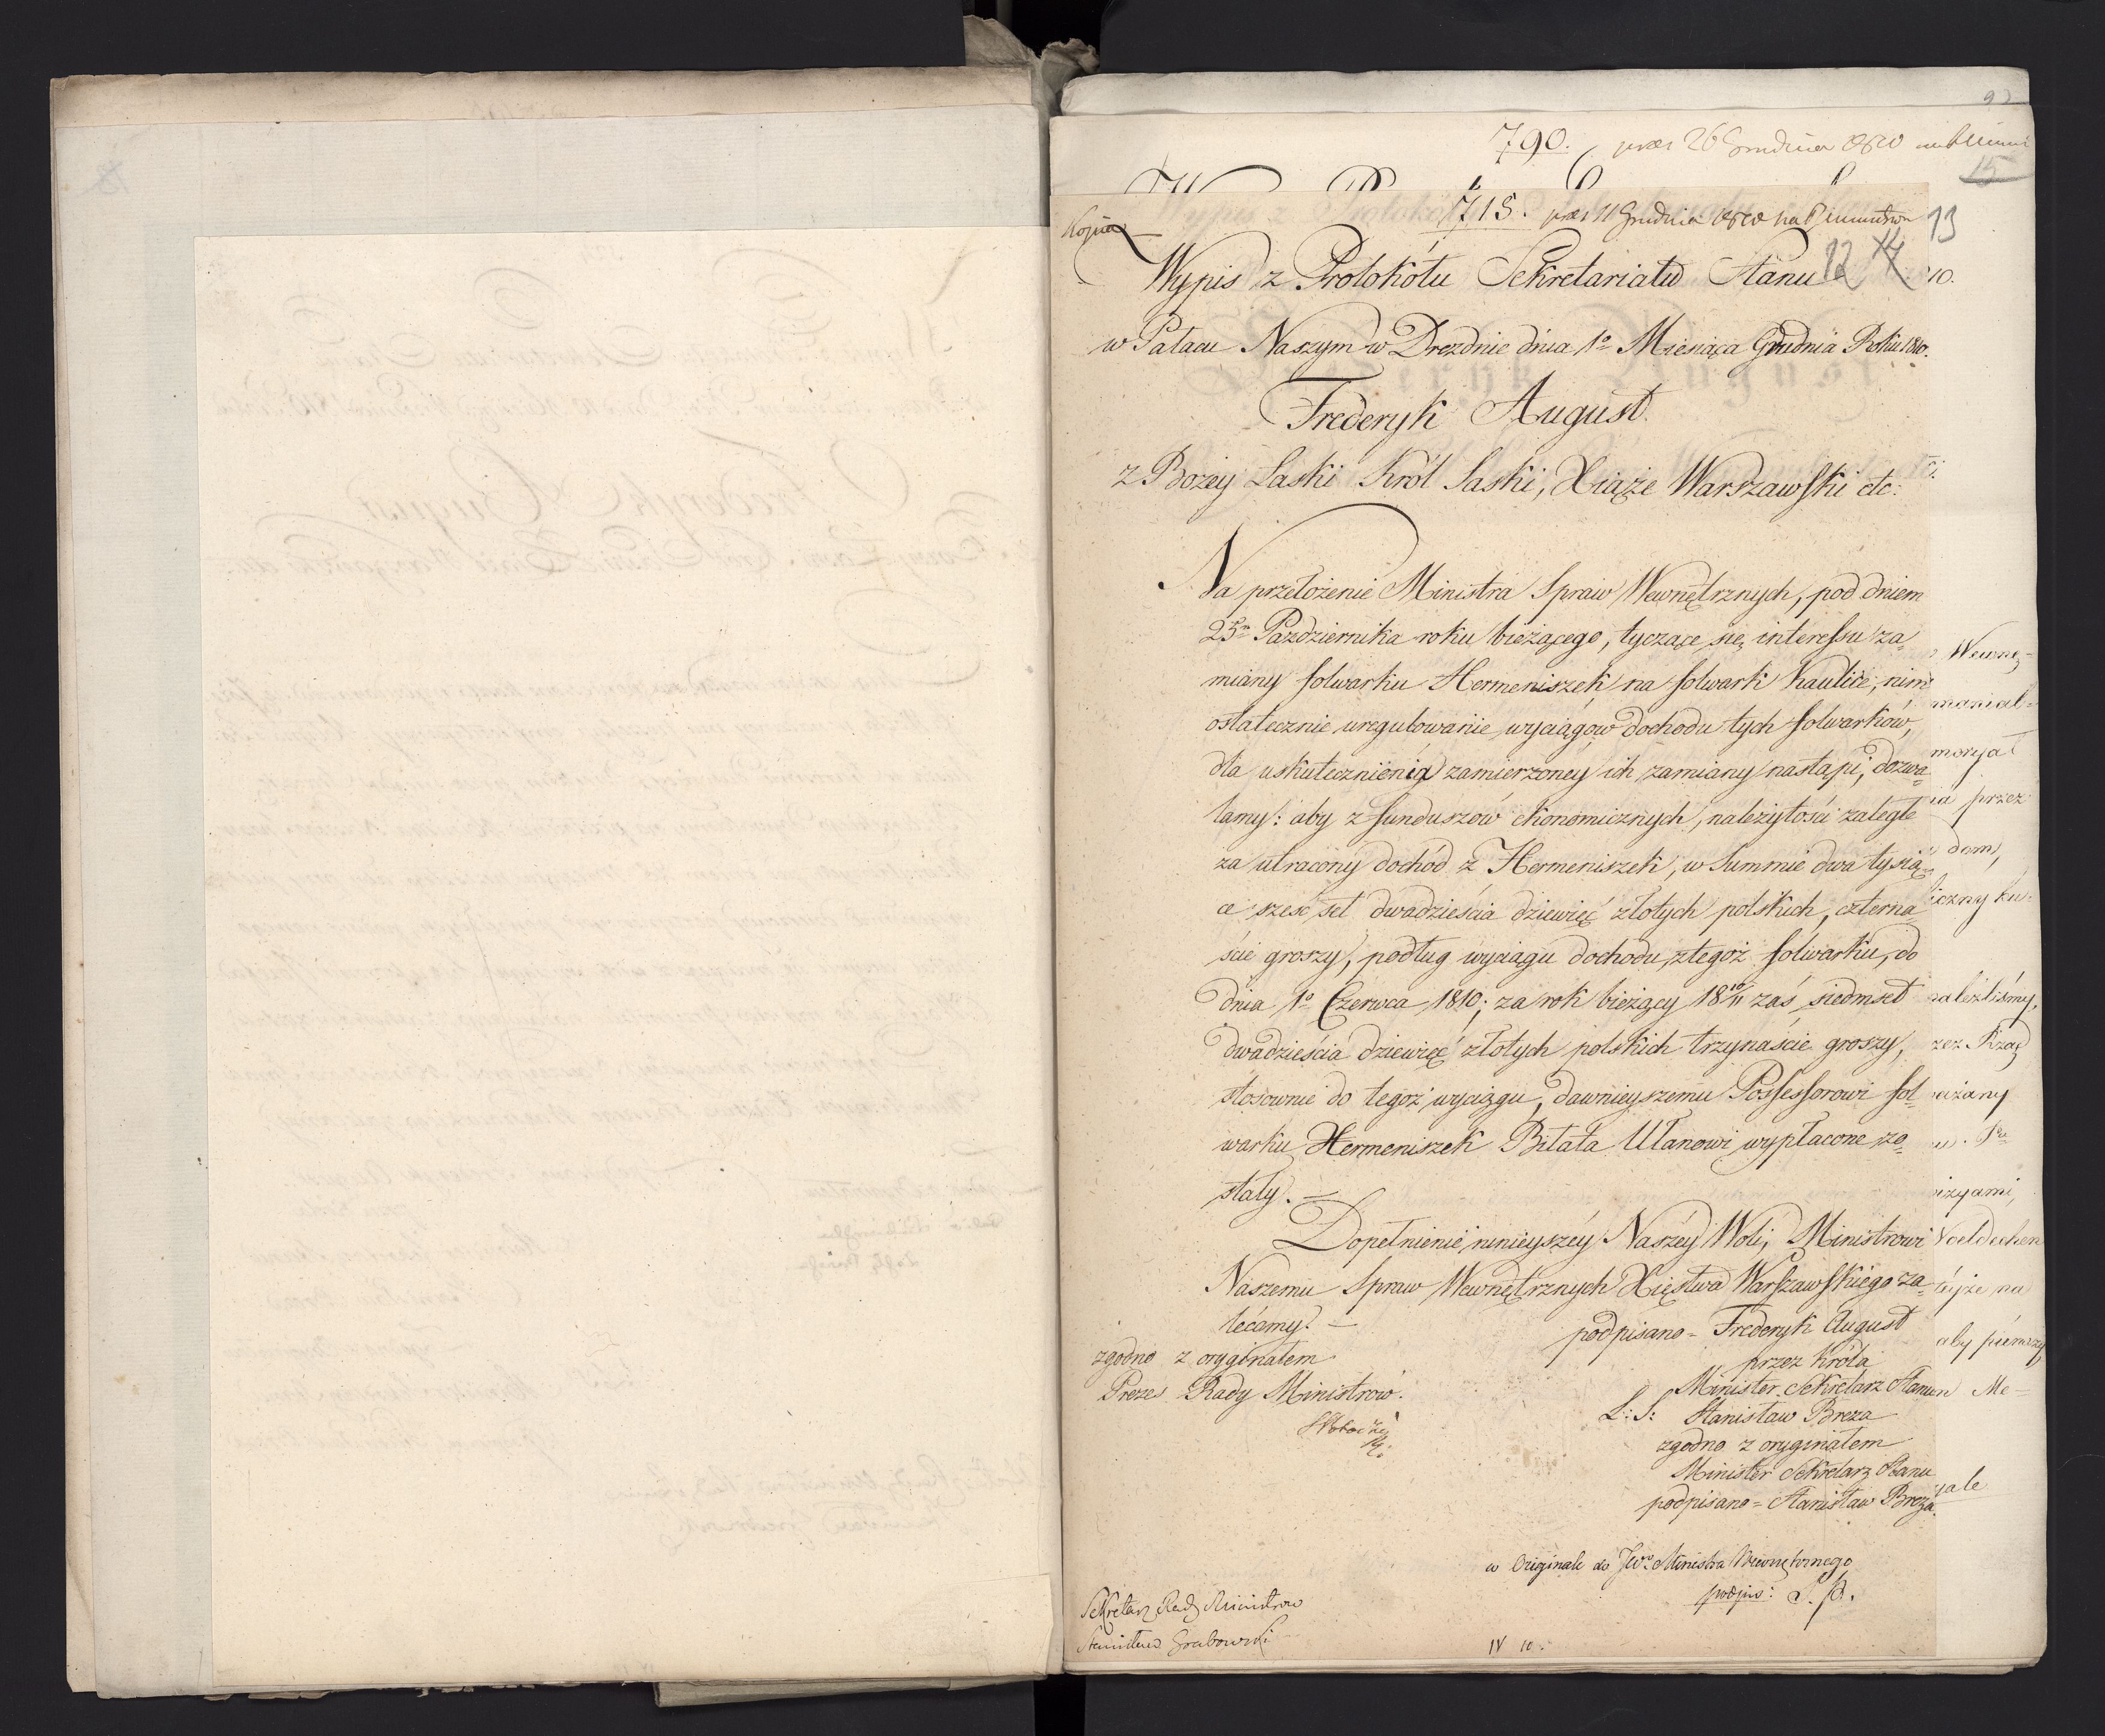 92
790. 26 Grudnia 1810
15
Kopia
715. 11 Grudnia 1810 na
13
Wypis z Protokółu Sekretariatu Stanu
12 14
10.
w Pałacu Naszym w Dreznie dnia 1o Miesiąca Grudnia Roku 1810.
Frederyk August
z Bożey Łaski Król Saski, Xiąże Warszawski etc:
Na przełożenie Ministra Spraw Wewnętrznych, pod dniem
25m Pazdziernika roku bieżącego, tyczące się interessu za-
miany folwarku Hermeniszek na folwark Kaulicie, nim
ostatecznie uregulowanie wyciągów dochodu tych folwarków,
dla uskutecznienia zamierzoney ich zamiany nastąpi, dozwa-
lamy: aby z funduszów ekonomicznych, należytości zaległe
za utracony dochód z Hermeniszek, w Summie dwa tysią-
ce sześć set dwadzieścia dziewięć złotych polskich, czterna-
ście groszy, podług wyciągu dochodu z tegoż folwarku, do
dnia 1o Czerwca 1810; za rok bieżący 18 10/11 zaś siedmset
dwadzieścia dziewięć złotych polskich trzynaście groszy,
stosownie do tegoż wyciągu, dawnieyszemu Possessorowi fol-
warku Hermeniszek Bilala Ułanowi wypłacone zo-
stały. —
Dopełnienie ninieyszéy Naszéy Woli, Ministrowi
Naszemu Spraw Wewnętrznych Xięstwa Warszawskiego za-
lécamy. —
podpisano = Frederyk August
przez Króla
Minister Sekretarz Stanu
L: S: Stanisław Breza
zgodno z oryginałem
Minister Sekretarz Stanu
podpisano = Stanisław Breza.
zgodno z oryginałem
Prezes Rady Ministrów.
w Originale do JWo Ministra Wewnętrznego
podpis: S. P.
Sekretarz Rady Ministrow
Stanisław Grabowski
IV 10.
Wewnę-
moryał
przez
dom,
iczny
należliśmy,
zez Rząd
ażany
izyami,
téyże na
aby piérwszy
Me=